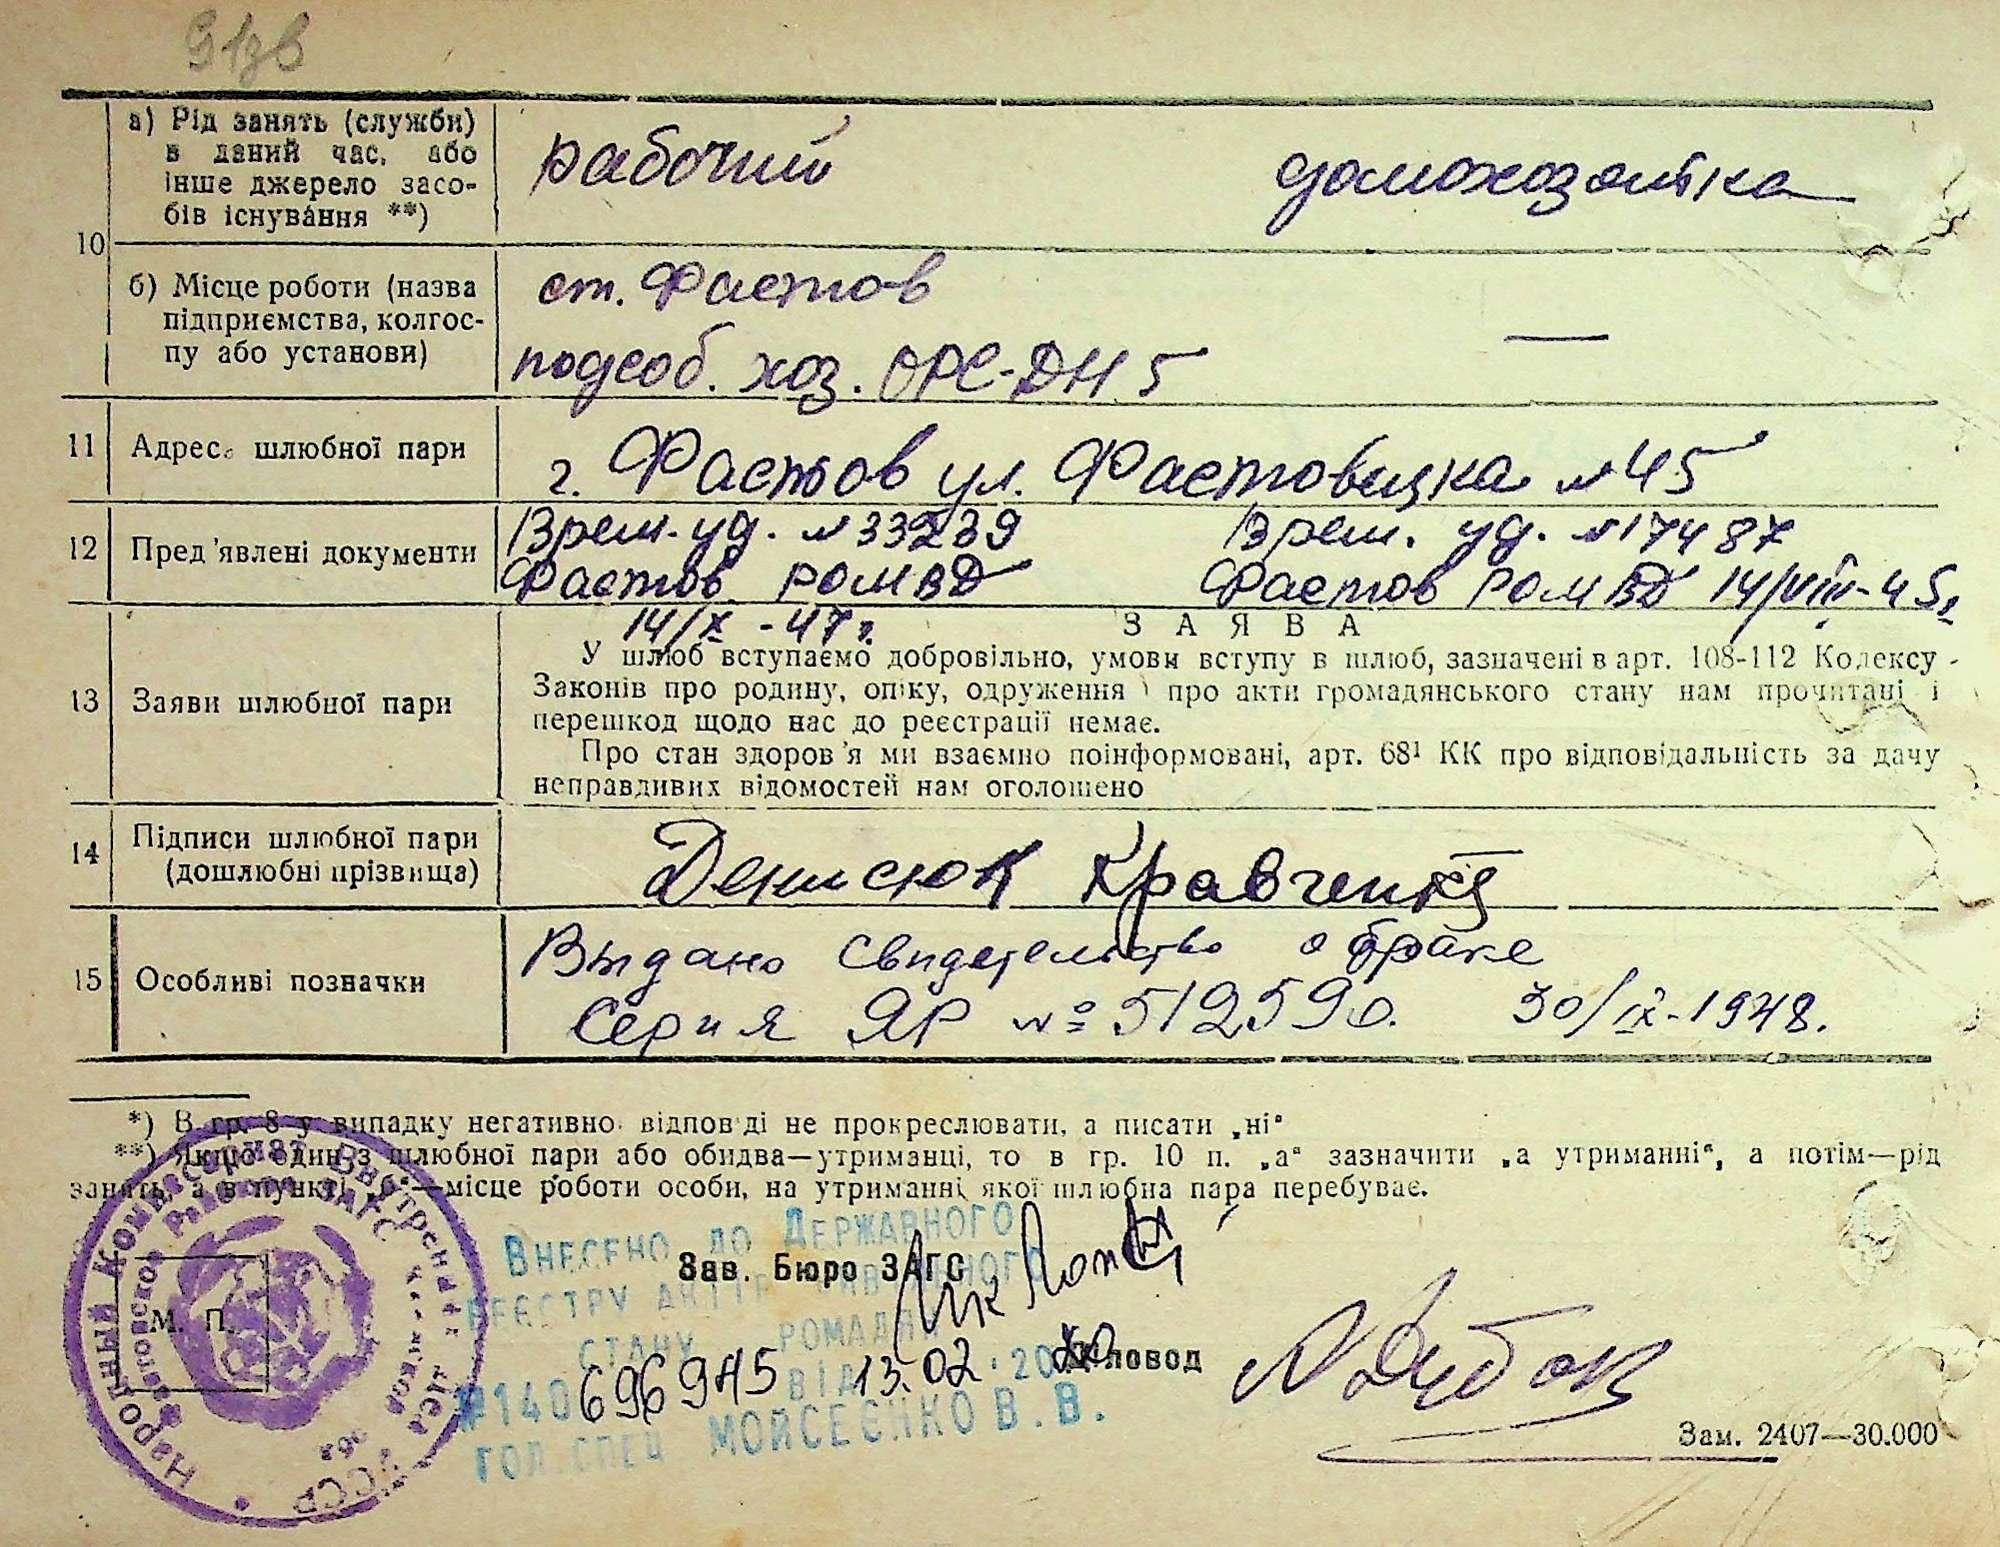 91зв
10
а) Рід занять (служби)
в даний час, або
інше джерело засо-
бів існування **)
рабочий
домохозяйка
б) Місце роботи (назва
підприємства, колгос-
пу або установи)
ст. Фастов
подсоб. хоз. ОРС-ДН 5
—
11 Адреса шлюбної пари
г. Фастов ул. Фастовецка № 45
12 Пред'явлені документи
Врем. уд. № 33239
Фастов. РОМВД
14/X - 47 г.
Врем. уд. № 17487
Фастов РОМВД 14/VIII-45г
13 Заяви шлюбної пари
ЗАЯВА
У шлюб вступаємо добровільно, умови вступу в шлюб, зазначені в арт. 108-112 Кодексу
Законів про родину, опіку, одруження і про акти громадянського стану нам прочитані і
перешкод щодо нас до реєстрації немає.
Про стан здоров'я ми взаємно поінформовані, арт. 68¹ КК про відповідальність за дачу
неправдивих відомостей нам оголошено
14 Підписи шлюбної пари
(дошлюбні прізвища)
Денисюк Кравченко
15 Особливі позначки
Выдано свидетельство о браке
Серия ЯР № 512590. 30/IX-1948.
*) В гр. 8 у випадку негативно відповіді не прокреслювати, а писати „ні"
**) Якщо один з шлюбної пари або обидва—утриманці, то в гр. 10 п. „а" зазначити „а утриманні", а потім—рід
занять, а в пункті „б"—місце роботи особи, на утриманні якої шлюбна пара перебуває.
Народный Комиссариат Внутренних Дел УССР
ЗАГС
М. П.
Внесено до Державного
реєстру актів цивільного
стану громадян
№140 696945 від 13.02.20
гол.спец Мойсеєнко В.В.
Зав. Бюро ЗАГС
Діловод
Зам. 2407—30.000